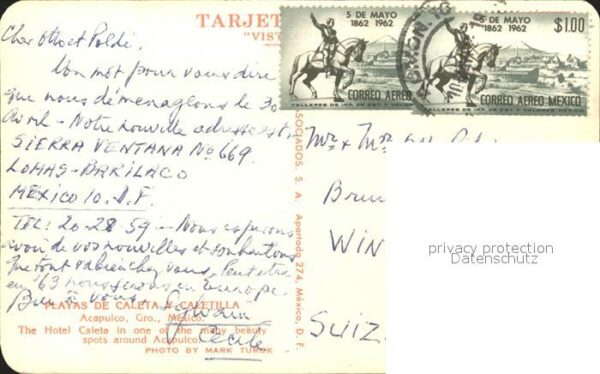 TARJET
"VIST
5 DE MAYO
1862 1962
CORREO AEREO
TALLERES DE IMP. DE EST. Y VALORES
5 DE MAYO
1862 1962
$1.00
CORREO AEREO MEXICO
TALLERES DE IMP. DE EST. Y VALORES MEXICO
Cher Otto et Poldi,
Un mot pour vous dire
que nous déménageons le 30
Avril - Notre nouvelle adresse est:
SIERRA VENTANA No 669.
LOMAS-BARILACO
MÉXICO 10. D.F.
TEL: 20-28-59 - Nous espérons
avoir de vos nouvelles et souhaitons
que tout va bien chez vous. Peut-être
en '63 nous irons en Europe.
Bien à vous
Cécile
PLAYAS DE CALETA Y CALETILLA
Acapulco, Gro., México
The Hotel Caleta in one of the many beauty
spots around Acapulco
PHOTO BY MARK TUROK
SOCIADOS, S. A. Apartado 274, México, D. F.
Mr & Mrs
WIN
SUIZ
privacy protection
DELCAMPE.NET